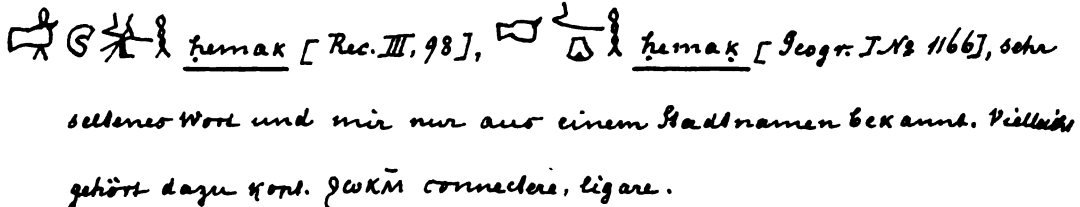 ḥemak [Rec. III, 98], ḥemaḳ [Geogr. I № 1166], sehr
seltenes Wort und mir nur aus einem Stadtnamen bekannt. Vielleicht
gehört dazu kopt. ϩωκⲙ̄ connectere, ligare.